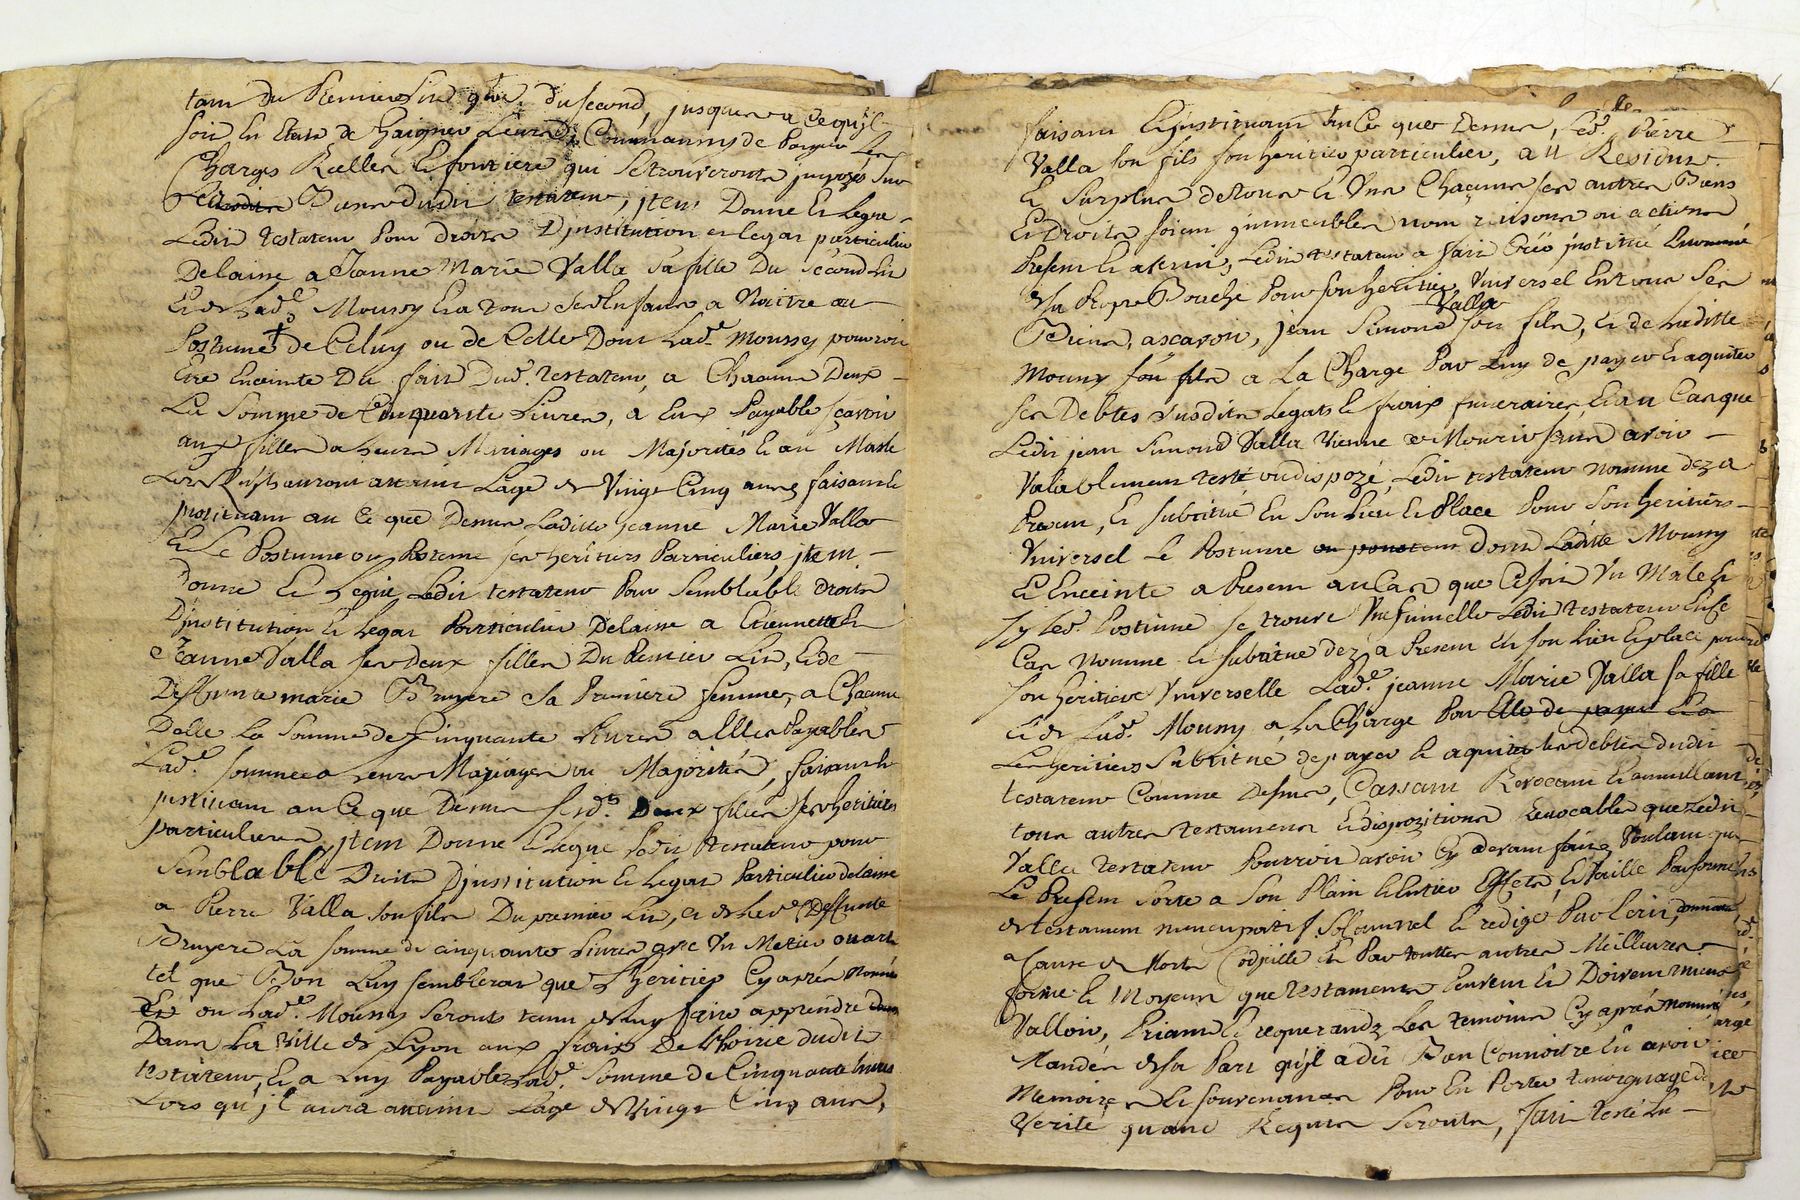 tam du Premier lit que du second, jusques a ce qu'jl
soit en Etat de Gaigner Leurs de payer Les
Charges Reelles et fonciere qui se trouveronts jmpozés sur
Biens dudit testateur, jtem Donne et Legue
Ledit testateur Pour droits D'jnstitution et legat particulier
Delaisse a Jeanne Marie Valla sa fille Du sécond Lit
Et de Lade Moussy Et a tous ses Enfants a Naitre ou
Postume de Celuy ou de Celle Dont Lade Moussy pourroit
Etre Enceinte Du fait Dud. testateur, a Chacuns Deux
La Somme de Cinquante Livres, a Eux Payable sçavoir
aux filles a leurs Mariages ou Majorités et au Masle
Lors auront attaint Lage de Vingt Cinq annés faisant et
jnstituant au Ce que Dessus Laditte jeanne Marie Valla
Et Le Postume ou Posteme ses heritiers Particuliers, jtem
Donne Et Legue Ledit testateur Pour Semblable droits
D'jnstitution Et Legat Particulier Delaisse a Etiennette Et
Jeanne Valla ses Deux filles Du Premier Lit, Et de
Deffunte marie Bruyere Sa Premiere femme, a Chacune
Delle La Somme de Cinquante Livres a Elles Payables
Lade. Somme a leurs Mariages ou Majorités, faisant et
jnstituant au Ce que Dessus Sesds. Deux filles Ses heritieres
particulieres, jtem Donne Et Legue Ledit testateur pour
Semblable Droits D'jnstitution Et Legat Particulier delaisse
a Pierre Valla son fils Du premier Lit, Et de Lade Deffunte
Bruyere La somme de cinquante Livres avec Un Metier ou art
tel que Bon Luy semblerat que L'heritier Cy aprés Nommé
ou Lade. Moussy Seronts tenu de Luy faire apprendre
Dans La Ville de Lyon aux fraix De L'hoirie dudit
testateur, Et a Luy Payable Lade. Somme de Cinquante Livres
Lors qu'jl aura attaint Lage de Vingt Cinq ans,
faisant Et jnstituant En Ce que Dessus, Led. Pierre
Valla son fils son heritier particulier, au Residus
Et Surplus de tous Et Uns Chacuns ses autres Biens
Et Droits soient jmmeubles nom raisons ou actions
Present Et avenir, Ledit testateur a fait Créé jnstitué Et nommé
de sa Propre Bouche Pour son heritier Universel En tous Ses
Valla
Biens, ascavoir, jean Simond son fils, Et de Laditte
Moussy son fils a La Charge Par Luy de payer Et aquiter
ses Debtes susdits Legats Et fraix funeraires, Et au Cas que
Ledit jean Simond Valla Vienne a Mourir sans avoir
Valablement testé ou dispozé, Ledit testateur nomme dez a
Present, Et substitué En son Lieu Et Place Pour Son heritiers
Universel Le Postume ou Dont Laditte Moussy
Et Enceinte a Present au Cas que Ce soit Un Male Et
sy Led. Postume se trouve Une fumelle Ledit testateur En Ce
Cas nomme Et substitue dez a Present En son Lieu Et place pour
son heritiere Universelle Lade. jeanne Marie Valla sa fille
Et de Lade. Moussy a La Charge Par Elle de payer
Les heritiers Substitué de payer Et aquiter Les debtes dudit
testateur Comme Dessus, Cassant Revocant Et annullant
tous autres testaments Et dispozitions Revocables que Ledit
Valla testateur Pourroit avoir Cy devant faits, Voulant que
Le Present Sorte a Son Plain Et Entier Effets, Et Vaille Par forme
de testament nuncupatif Solemnel Et redigé Par Ecrit, donnation
a Cause de Morts Codjcille Et Par touttes autres Meilleures
forme Et Moyens que testaments Peuvent Et Doivent mieux
Valloir, Priant Et requerandz Les temoins Cy aprés nommés
Mandés de sa Part qu'jl a dit Bien Connoitre En avoir
Memoire Et souvenance Pour En Porter temoignage De
Verité quand Requis Seronts, fait testé Lu